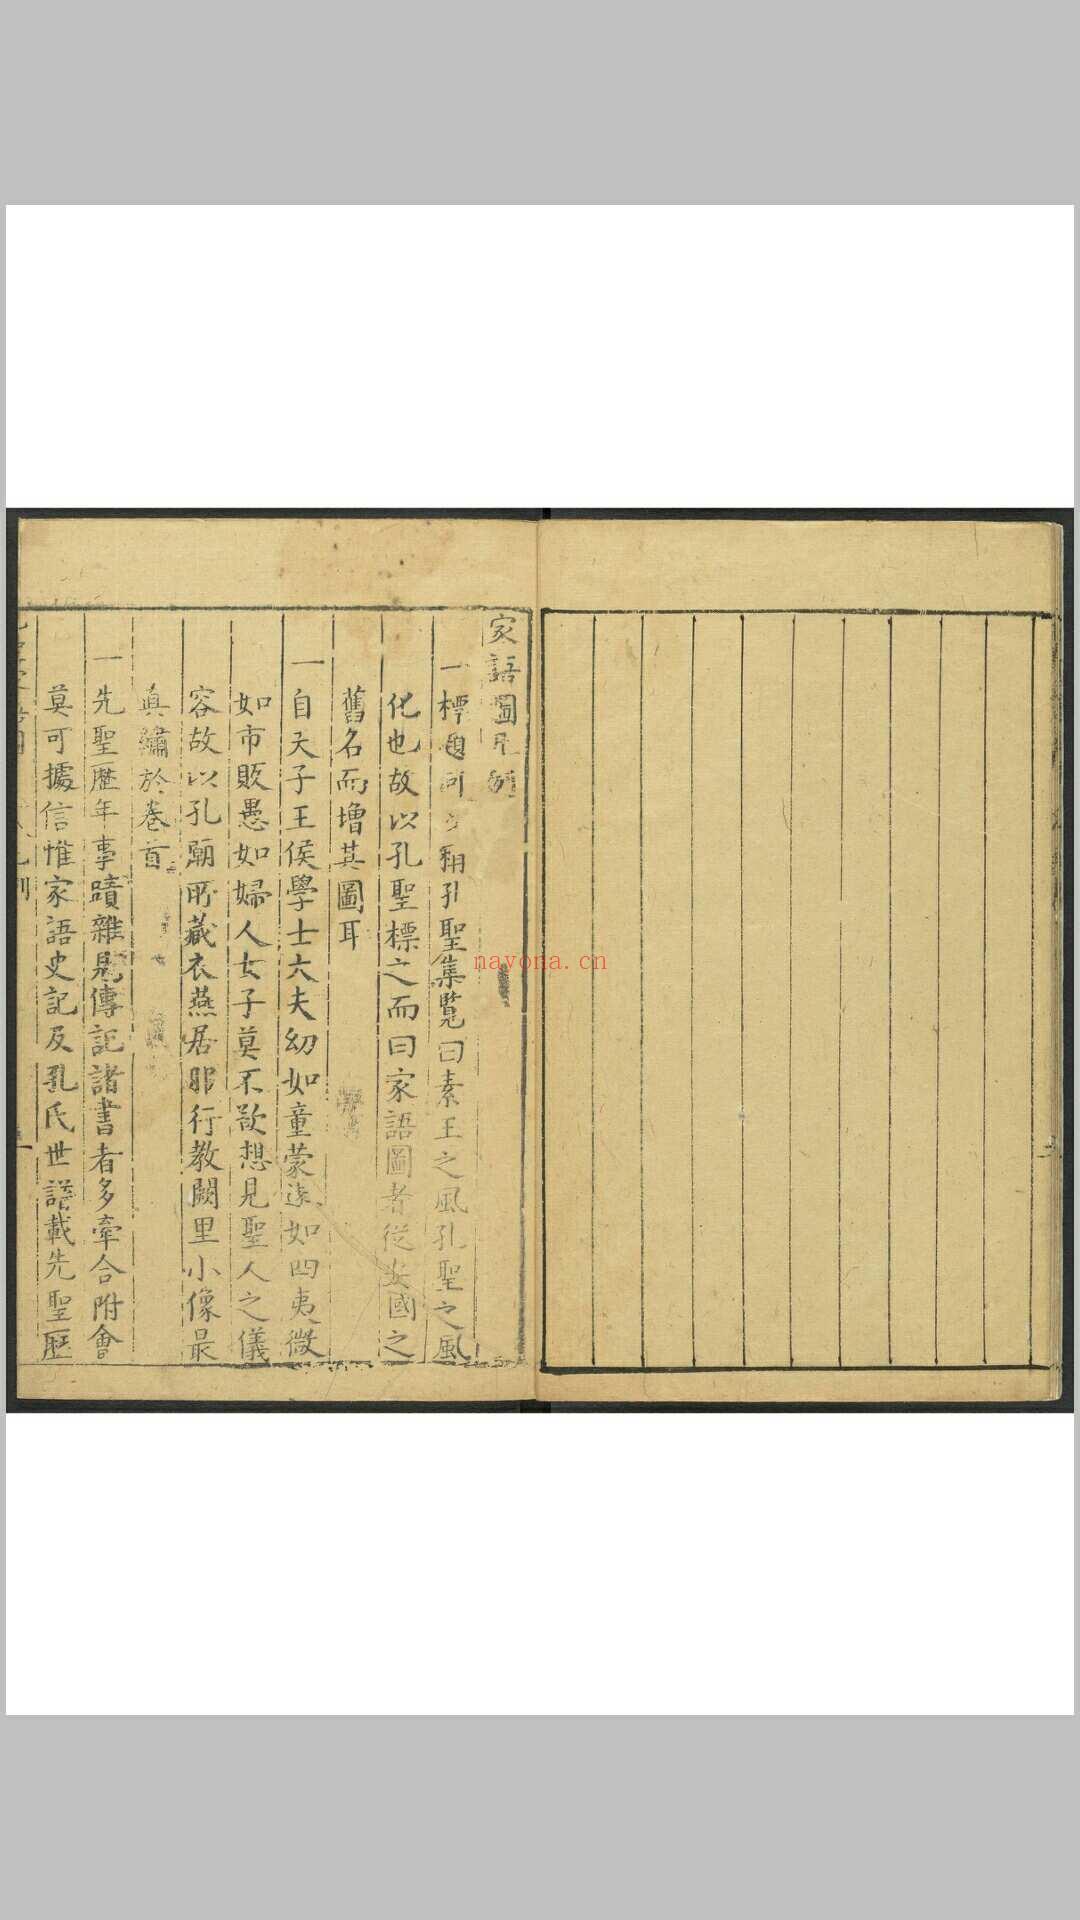 家語圖凡例
一標題何以稱孔聖集覽曰素王之風孔聖之風
化也故以孔聖標之而曰家語圖者從安國之
舊名而增其圖耳
一自天子王侯學士大夫幼如童蒙遠如四夷微
如市販愚如婦人女子莫不欲想見聖人之儀
容故以孔廟所藏衣燕居服行教闕里小像最
真繡於卷首
一先聖歷年事蹟雜見傳記諸書者多牽合附會
莫可據信惟家語史記及孔氏世譜載先聖歷
nayona.cn